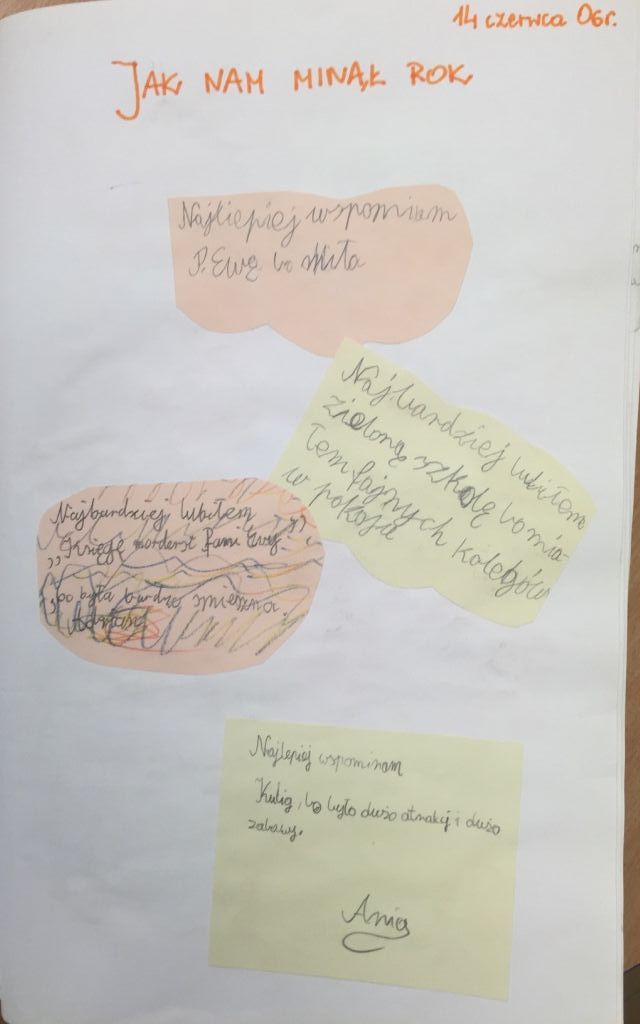 14 czerwca 06r.
JAK NAM MINĄŁ ROK
Najliepiej wspominam
P. Ewę bo miła
Najbardziej lubiłem
zieloną szkołę bo mia-
łem fajnych kolegów
w pokoju
Najbardziej lubiłem
„Księgę morderst Pani Ewy"
bo była bardzo śmieszna.
Najlepiej wspominam
Kulig, bo było dużo atrakcji i dużo
zabawy.
Ania